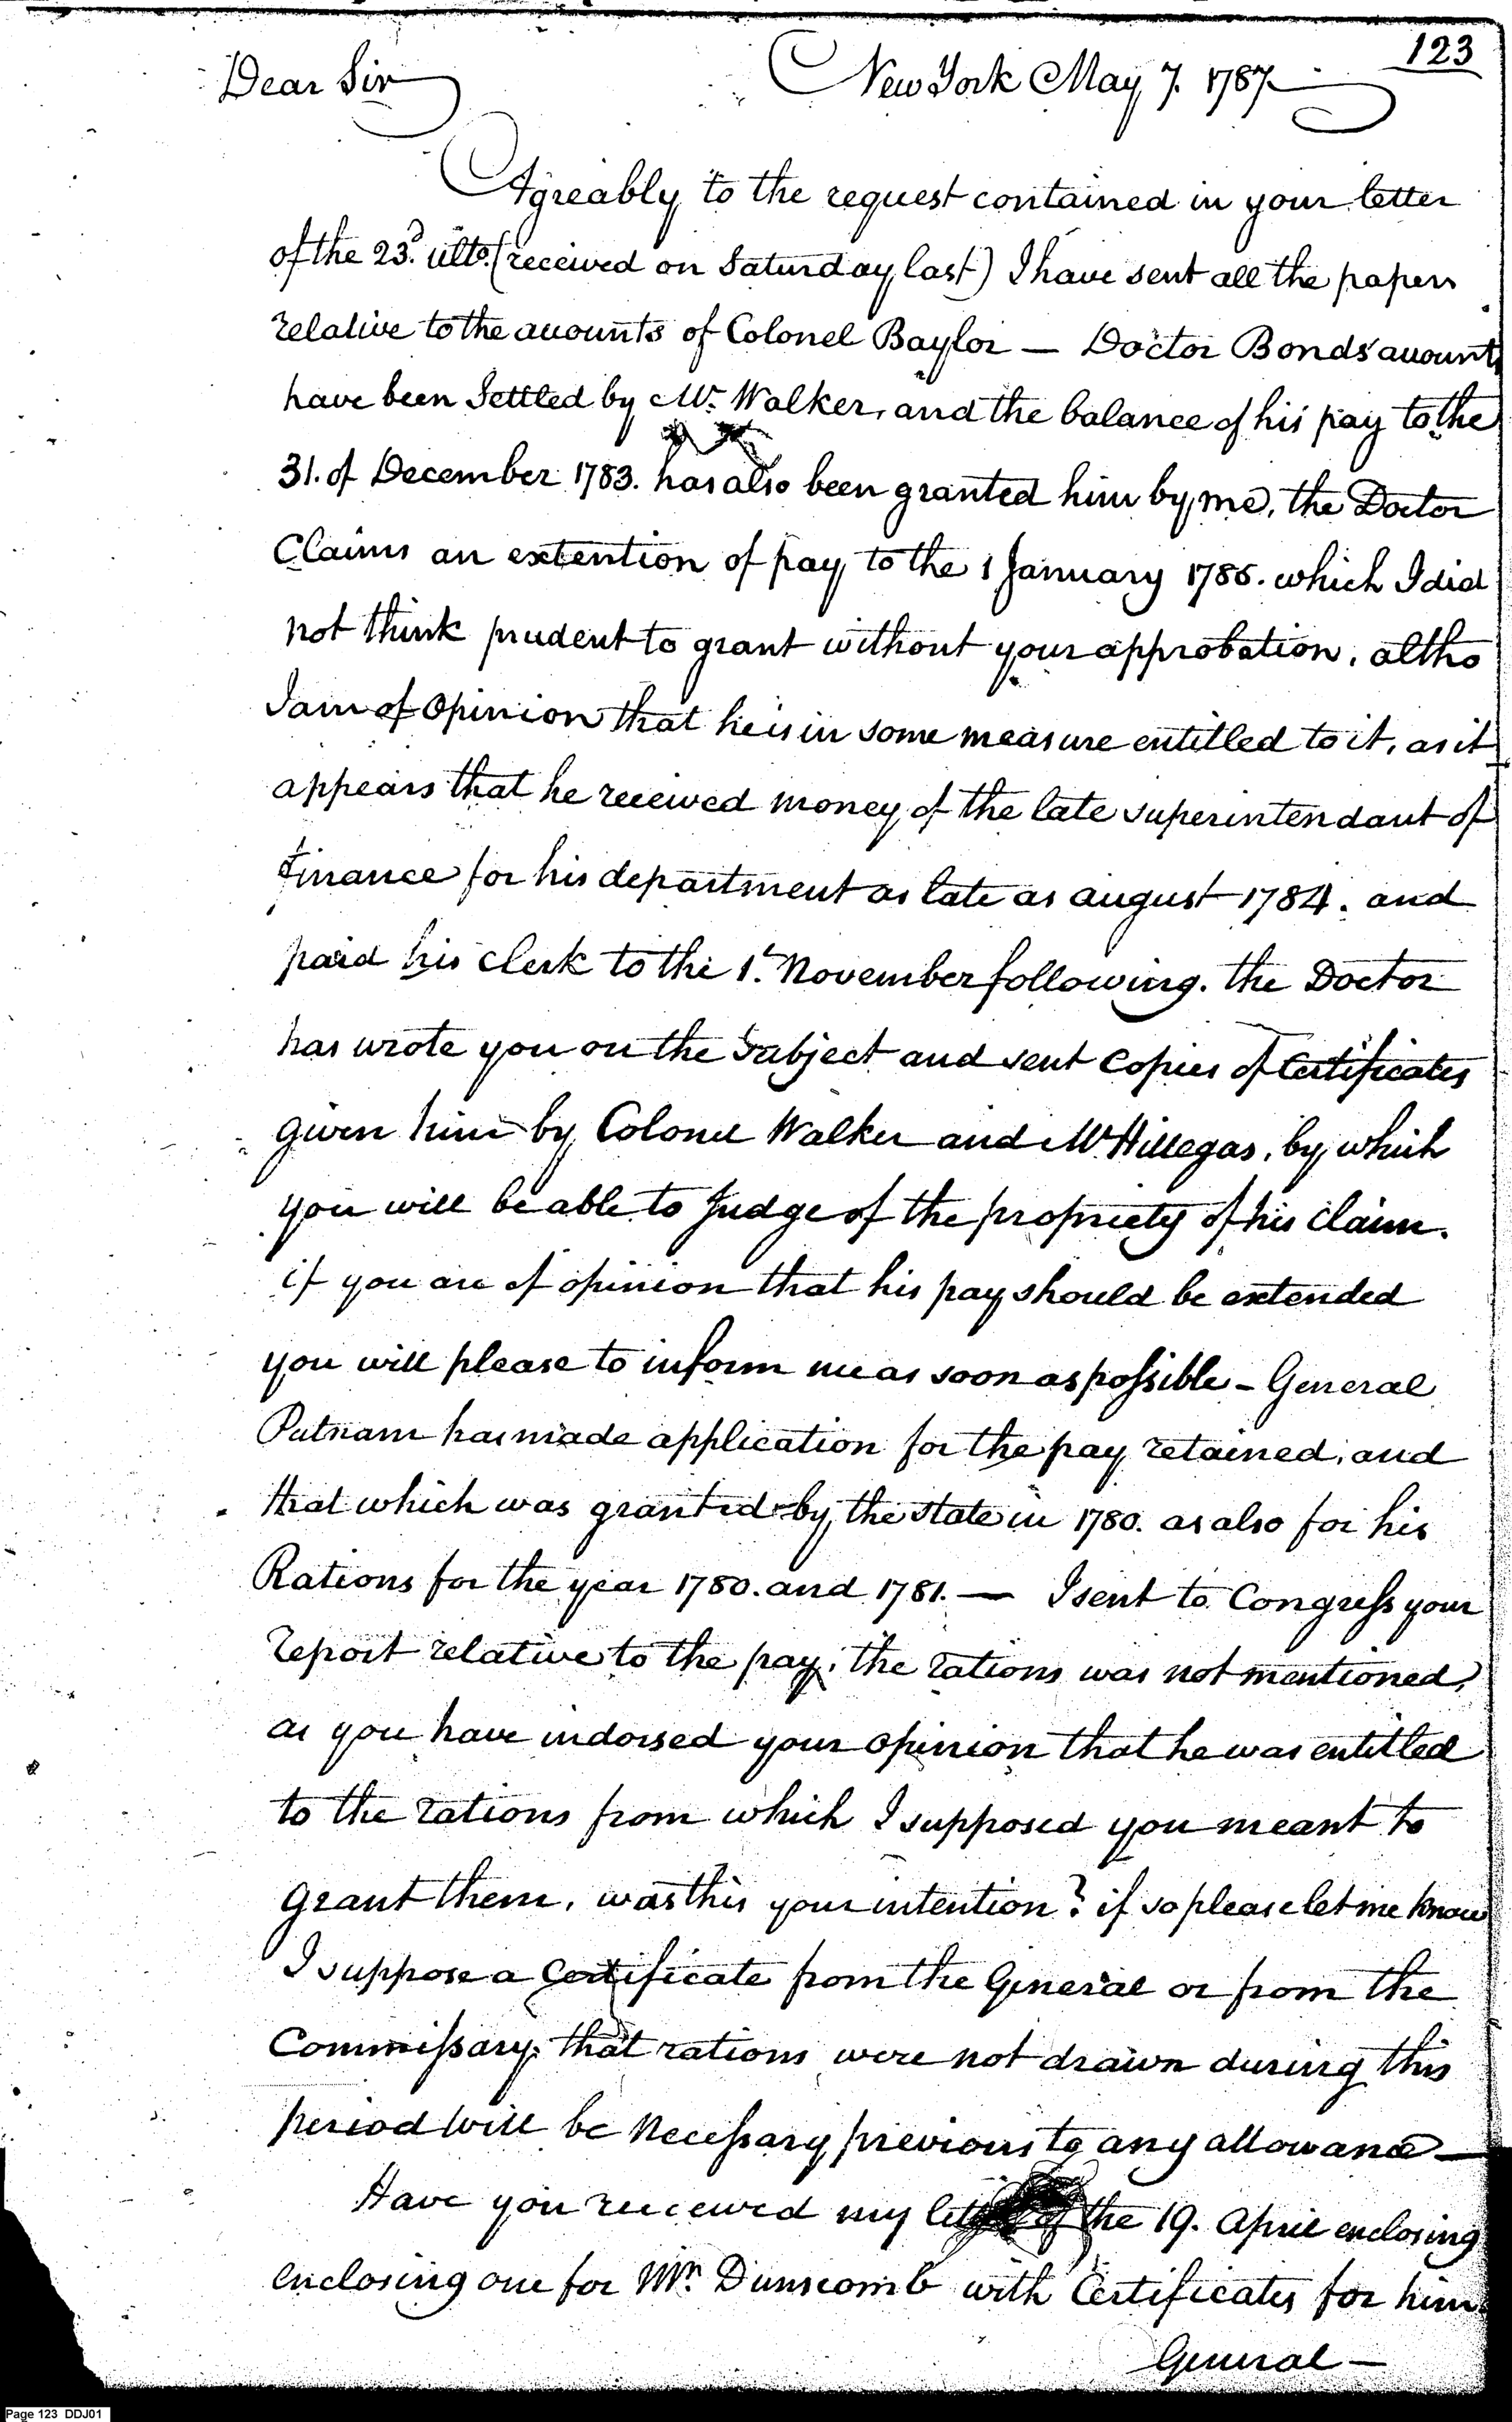 123
Dear Sir New York May 7. 1787.
Agreably to the request contained in your letter
of the 23.d ulto. (received on Saturday last) I have sent all the papers
relative to the accounts of Colonel Baylor — Doctor Bonds accounts
have been Settled by Mr. Walker, and the balance of his pay to the
31. of December 1783. has also been granted him by me, the Doctor
Claims an extention of pay to the 1 January 1785. which I did
not think prudent to grant without your approbation, altho
I am of Opinion that he is in some measure entitled to it, as it
appears that he received money of the late superintendant of
finance for his department as late as august 1784. and
paid his Clerk to the 1.t November following. the Doctor
has wrote you on the Subject and sent Copies of Certificates
given him by Colonel Walker and Mr Hillegas, by which
you will be able to Judge of the propriety of his Claim.
if you are of opinion that his pay should be extended
you will please to inform me as soon as possible — General
Putnam has made application for the pay retained, and
that which was granted by the state in 1780. as also for his
Rations for the year 1780. and 1781. — I sent to Congress your
report relative to the pay, the rations was not mentioned,
as you have indorsed your opinion that he was entitled
to the rations from which I supposed you meant to
grant them, was this your intention? if so please let me know
I suppose a Certificate from the General or from the
Commissary, that rations were not drawn during this
period will be Necessary previous to any allowance —
Have you received my letter of the 19. April enclosing
enclosing one for Mr. Dunscomb with Certificates for him
General —
Page 123 DDJ01